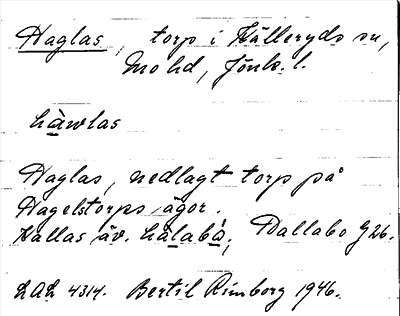 Haglas, torp i Källeryds sn,
Mo hd, Jönk. l.
hàwlas
Haglas, nedlagt torp på
Hagelstorps ägor.
Kallas äv. halabo, Dallabo G26.
LAL 4314. Bertil Rimborg 1946.